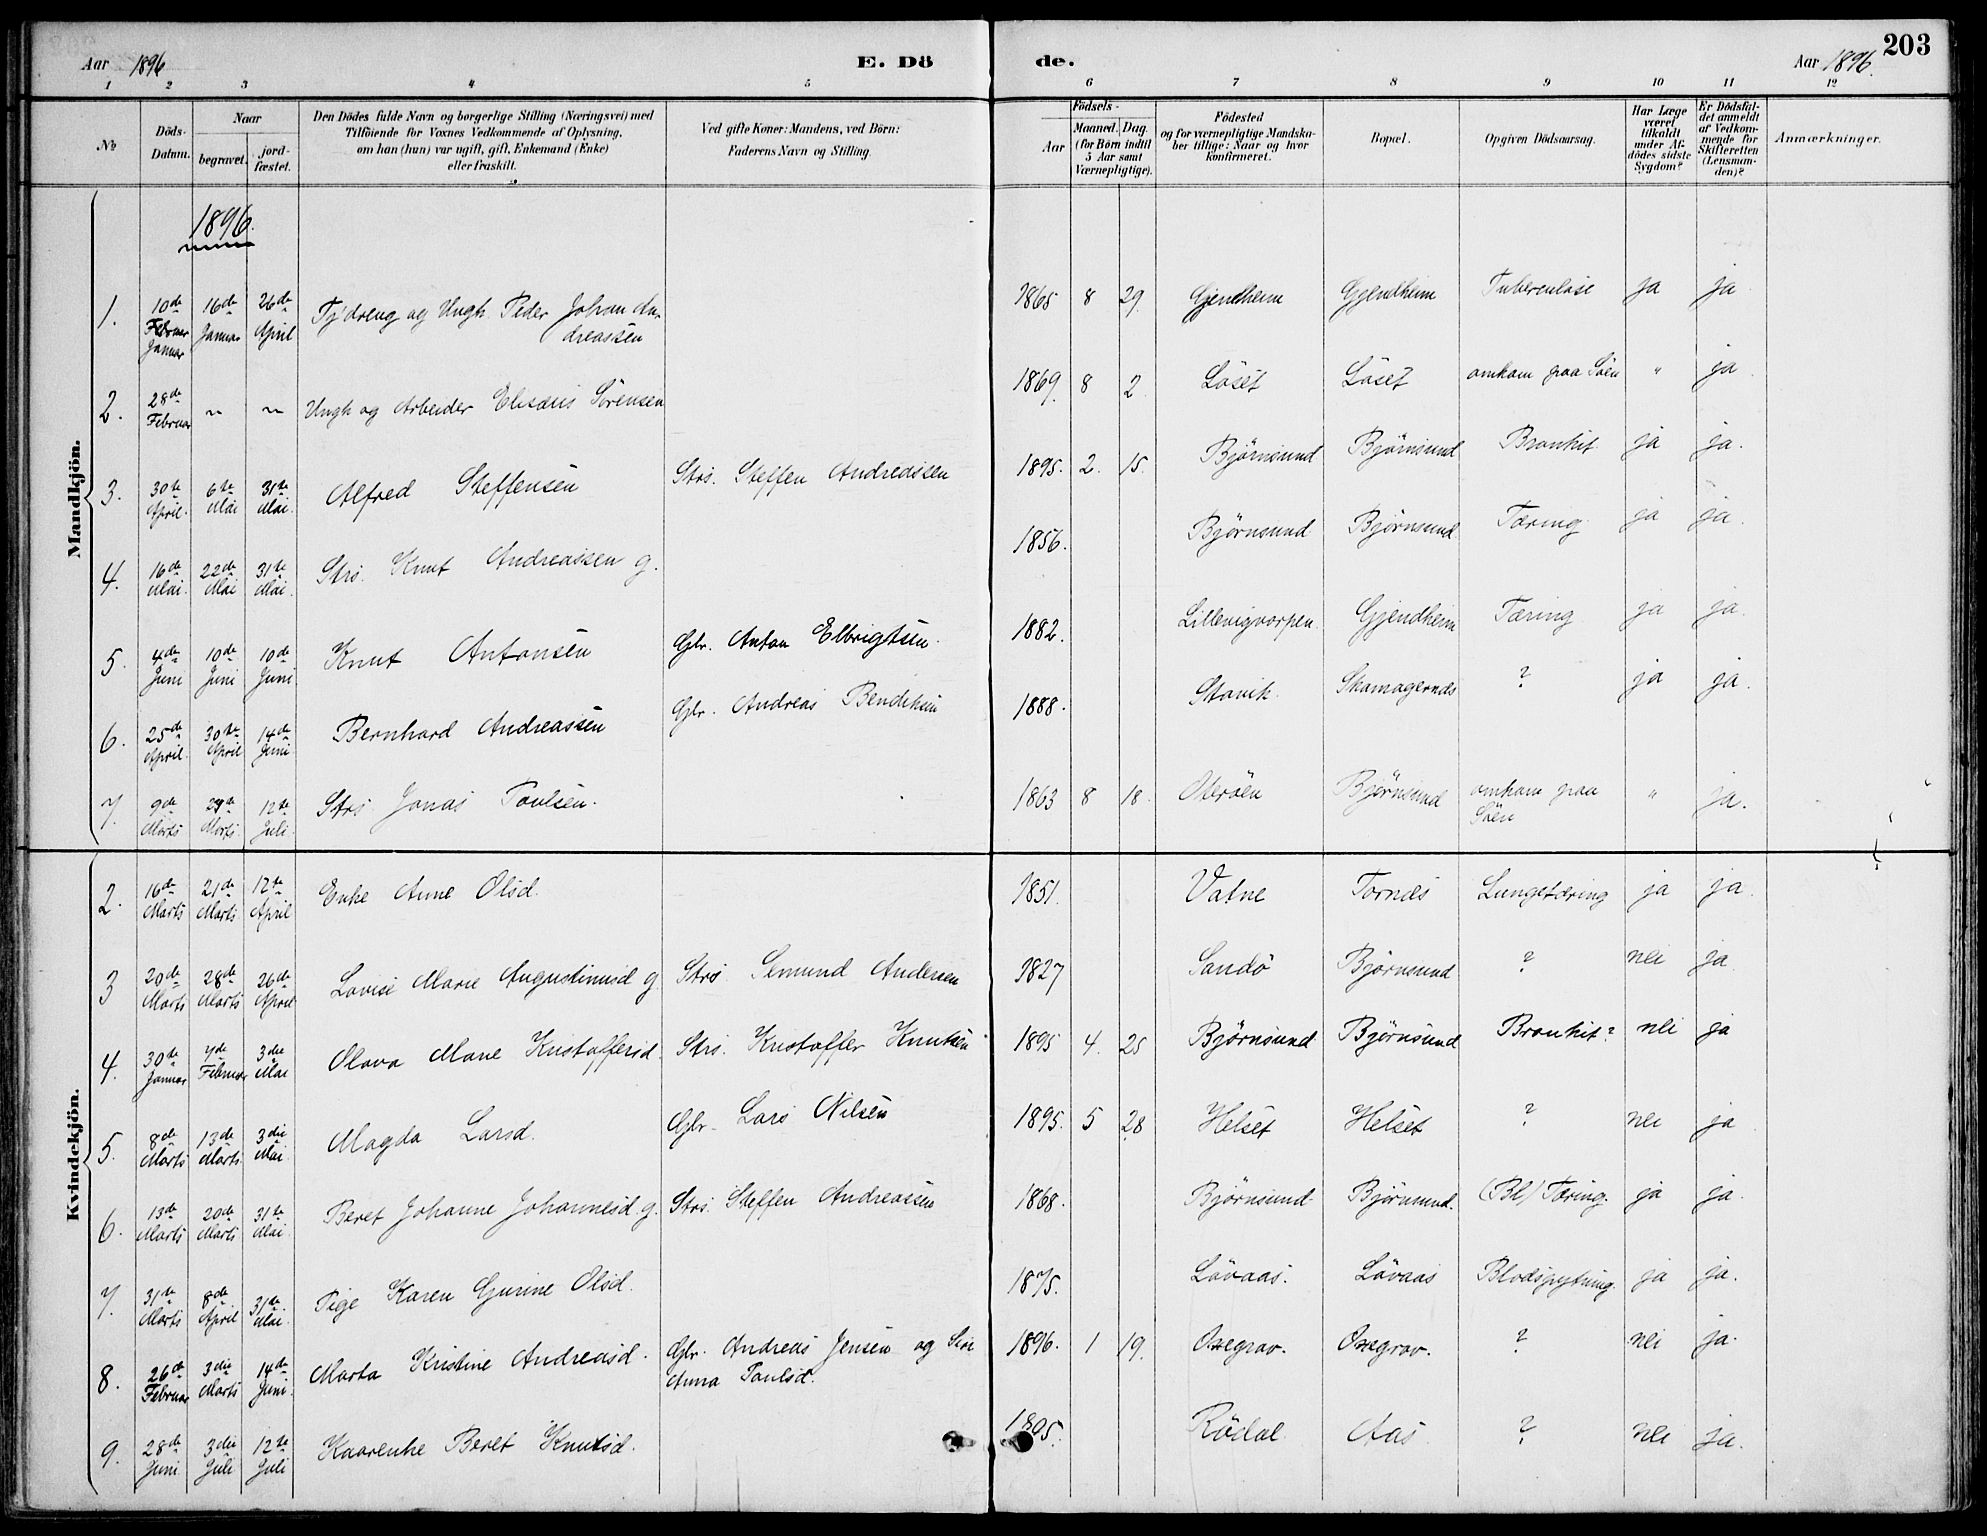 203
Aar 1896 E. Dö de. Aar 1896.
1 2 3 4 5 6 7 8 9 10 11 12
№ Döds-Datum. Naar begravet. jordfæstet. Den Dödes fulde Navn og borgerlige Stilling (Næringsvei) med Tilföiende for Voxnes Vedkommende af Oplysning, om han (hun) var ugift, gift, Enkemand (Enke) eller fraskilt. Ved gifte Koner: Mandens, ved Börn: Faderens Navn og Stilling. Födsels- Aar Maaned. Dag. (for Börn indtil 5 Aar samt Værnepligtige). Födested og for værnepligtige Mandskaber tillige: Naar og hvor konfirmeret. Bopæl. Opgiven Dödsaarsag. Har Læge været tilkaldt under Afdödes sidste Sygdom? Er Dödsfaldet anmeldt af Vedkommende for Skifteretten (Lensmanden)? Anmærkninger.
1896.
Mandkjön.
1. 10de Februar Januar 16de Januar 26de April Tjdreng og Ungk. Peder Johan Andreassen 1865 8 29. Gjendheim Gjendheim Tuberculose ja ja
2. 28de Februar " " Ungk og Arbeider Elisæus Sörensen 1869. 8 2 Löset Löset omkom paa Söen " ja
3. 30te April. 6te Mai 31te Mai. Alfred Steffensen Strs. Steffen Andreassen 1895. 2. 15. Björnsund Björnsund Bronkit ja ja.
4. 16de Mai. 22de Mai 31te Mai. Strs. Knut Andreassen g. 1856. Björnsund Björnsund Tæring ja ja.
5. 4de Juni 10de Juni 10de Juni Knut Antonsen Gbr. Anton Elbrigtsen. 1882. Lillevigvorpen Gjendheim Tæring ja ja.
6. 25de April. 30te April 14de Juni Bernhard Andreassen Gbr. Andreas Bendiksen 1888. Stavik. Skamagernes ? ja ja.
7. 9de Marts 29de Marts. 12te Juli. Strs Jonas Paulsen. 1863 8 18. Oteröen Björnsund omkom paa Söen " ja.
Kvindekjön.
2. 16de Marts 21de Marts 12te April Enke Anne Olsd. 1851. Vatne Tornes Lungetæring ja ja.
3 20de Marts 28de Marts 26de April Lovise Marie Augustinusd g Strs. Semund Andersen 1827 Sandö Björnsund ? nei ja
4. 30te Januar 7de Februar 3die Mai Olava Marie Kristoffersd. Strs. Kristoffer Knutsen 1895 4. 25 Björnsund Björnsund Bronkit? nei ja
5. 8de Marts 13de Marts. 3die Mai. Magda Larsd. Gbr. Lars Nilsen 1895. 5 28 Helset Helset ? nei ja
6. 13de Marts 20de Marts 31te Mai Beret Johanne Johannesd. g. Strs. Steffen Andreassen 1868. Björnsund Björnsund. (Bl) Tæring. ja ja.
7. 31te Marts 8de April 31te Mai. Pige Karen Gurine Olsd. 1875. Lövaas. Lövaas Blodspytning. ja ja.
8. 26de Februar 3die Marts 14de Juni Marta Kristine Andreasd. Gbr. Andreas Jensen og Siri Anna Paulsd. 1896. 1 19. Oxegrav. Oxegrav. ? nei ja.
9. 28de Juni 3die Juli 12te Juli Kaarenke Beret Knutsd. 1895. Rödal Aas ? nei ja.